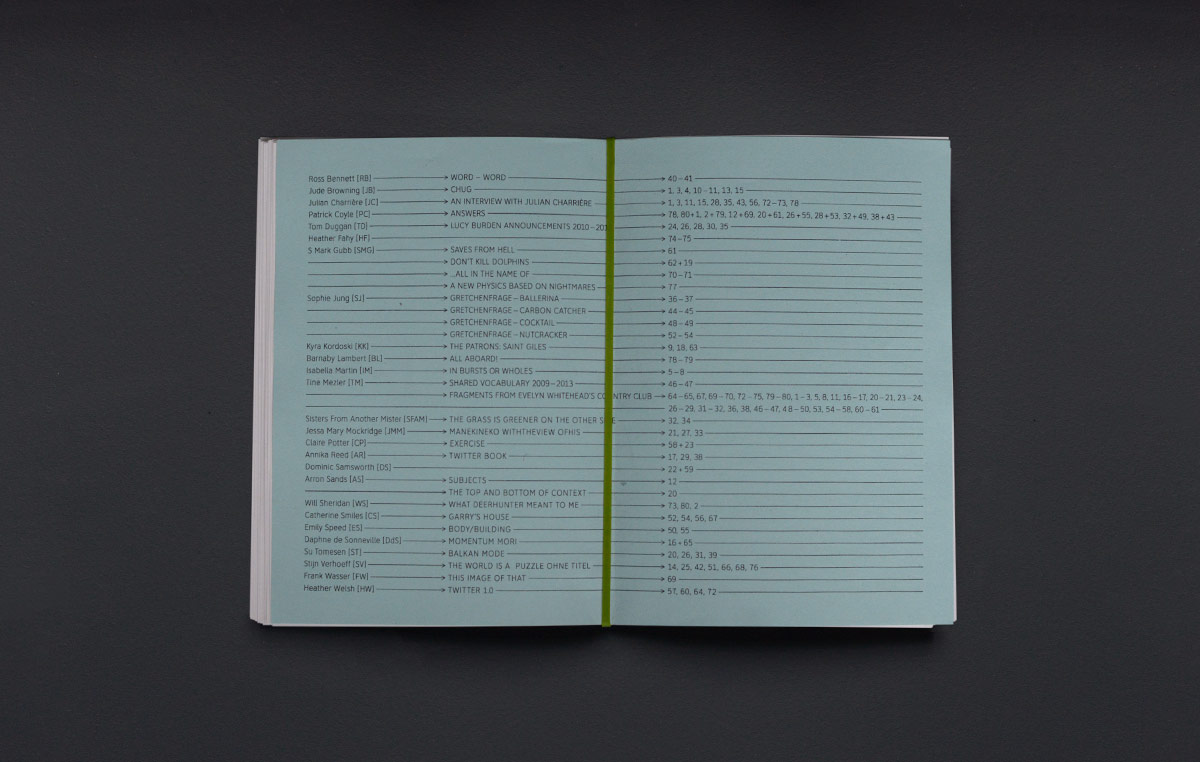 Ross Bennett [RB] → WORD – WORD → 40 – 41
Jude Browning [JB] → CHUG → 1, 3, 4, 10 – 11, 13, 15
Julian Charrière [JC] → AN INTERVIEW WITH JULIAN CHARRIÈRE → 1, 3, 11, 15, 28, 35, 43, 56, 72 – 73, 78
Patrick Coyle [PC] → ANSWERS → 78, 80 + 1, 2 + 79, 12 + 69, 20 + 61, 26 + 55, 28 + 53, 32 + 49, 38 + 43
Tom Duggan [TD] → LUCY BURDEN ANNOUNCEMENTS 2010 – 201 → 24, 26, 28, 30, 35
Heather Fahy [HF] → 74 – 75
S Mark Gubb [SMG] → SAVES FROM HELL → 61
→ DON'T KILL DOLPHINS → 62 + 19
→ ...ALL IN THE NAME OF → 70 – 71
→ A NEW PHYSICS BASED ON NIGHTMARES → 77
Sophie Jung [SJ] → GRETCHENFRAGE – BALLERINA → 36 – 37
→ GRETCHENFRAGE – CARBON CATCHER → 44 – 45
→ GRETCHENFRAGE – COCKTAIL → 48 – 49
→ GRETCHENFRAGE – NUTCRACKER → 52 – 54
Kyra Kordoski [KK] → THE PATRONS: SAINT GILES → 9, 18, 63
Barnaby Lambert [BL] → ALL ABOARD! → 78 – 79
Isabella Martin [IM] → IN BURSTS OR WHOLES → 5 – 8
Tine Mezier [TM] → SHARED VOCABULARY 2009 – 2013 → 46 – 47
→ FRAGMENTS FROM EVELYN WHITEHEAD'S CO NTRY CLUB → 64 – 65, 67, 69 – 70, 72 – 75, 79 – 80, 1 – 3, 5, 8, 11, 16 – 17, 20 – 21, 23 – 24,
26 – 29, 31 – 32, 36, 38, 46 – 47, 48 – 50, 53, 54 – 58, 60 – 61
Sisters From Another Mister [SFAM] → THE GRASS IS GREENER ON THE OTHER S E → 32, 34
Jessa Mary Mockridge [JMM] → MANEKINEKO WITHTHEVIEW OFHIS → 21, 27, 33
Claire Potter [CP] → EXERCISE → 58 + 23
Annika Reed [AR] → TWITTER BOOK → 17, 29, 38
Dominic Samsworth [DS] → 22 + 59
Arron Sands [AS] → SUBJECTS → 12
→ THE TOP AND BOTTOM OF CONTEXT → 20
Will Sheridan [WS] → WHAT DEERHUNTER MEANT TO ME → 73, 80, 2
Catherine Smiles [CS] → GARRY'S HOUSE → 52, 54, 56, 67
Emily Speed [ES] → BODY/BUILDING → 50, 55
Daphne de Sonneville [DdS] → MOMENTUM MORI → 16 + 65
Su Tomesen [ST] → BALKAN MODE → 20, 26, 31, 39
Stijn Verhoeff [SV] → THE WORLD IS A PUZZLE OHNE TITEL → 14, 25, 42, 51, 66, 68, 76
Frank Wasser [FW] → THIS IMAGE OF THAT → 69
Heather Welsh [HW] → TWITTER 1.0 → 57, 60, 64, 72